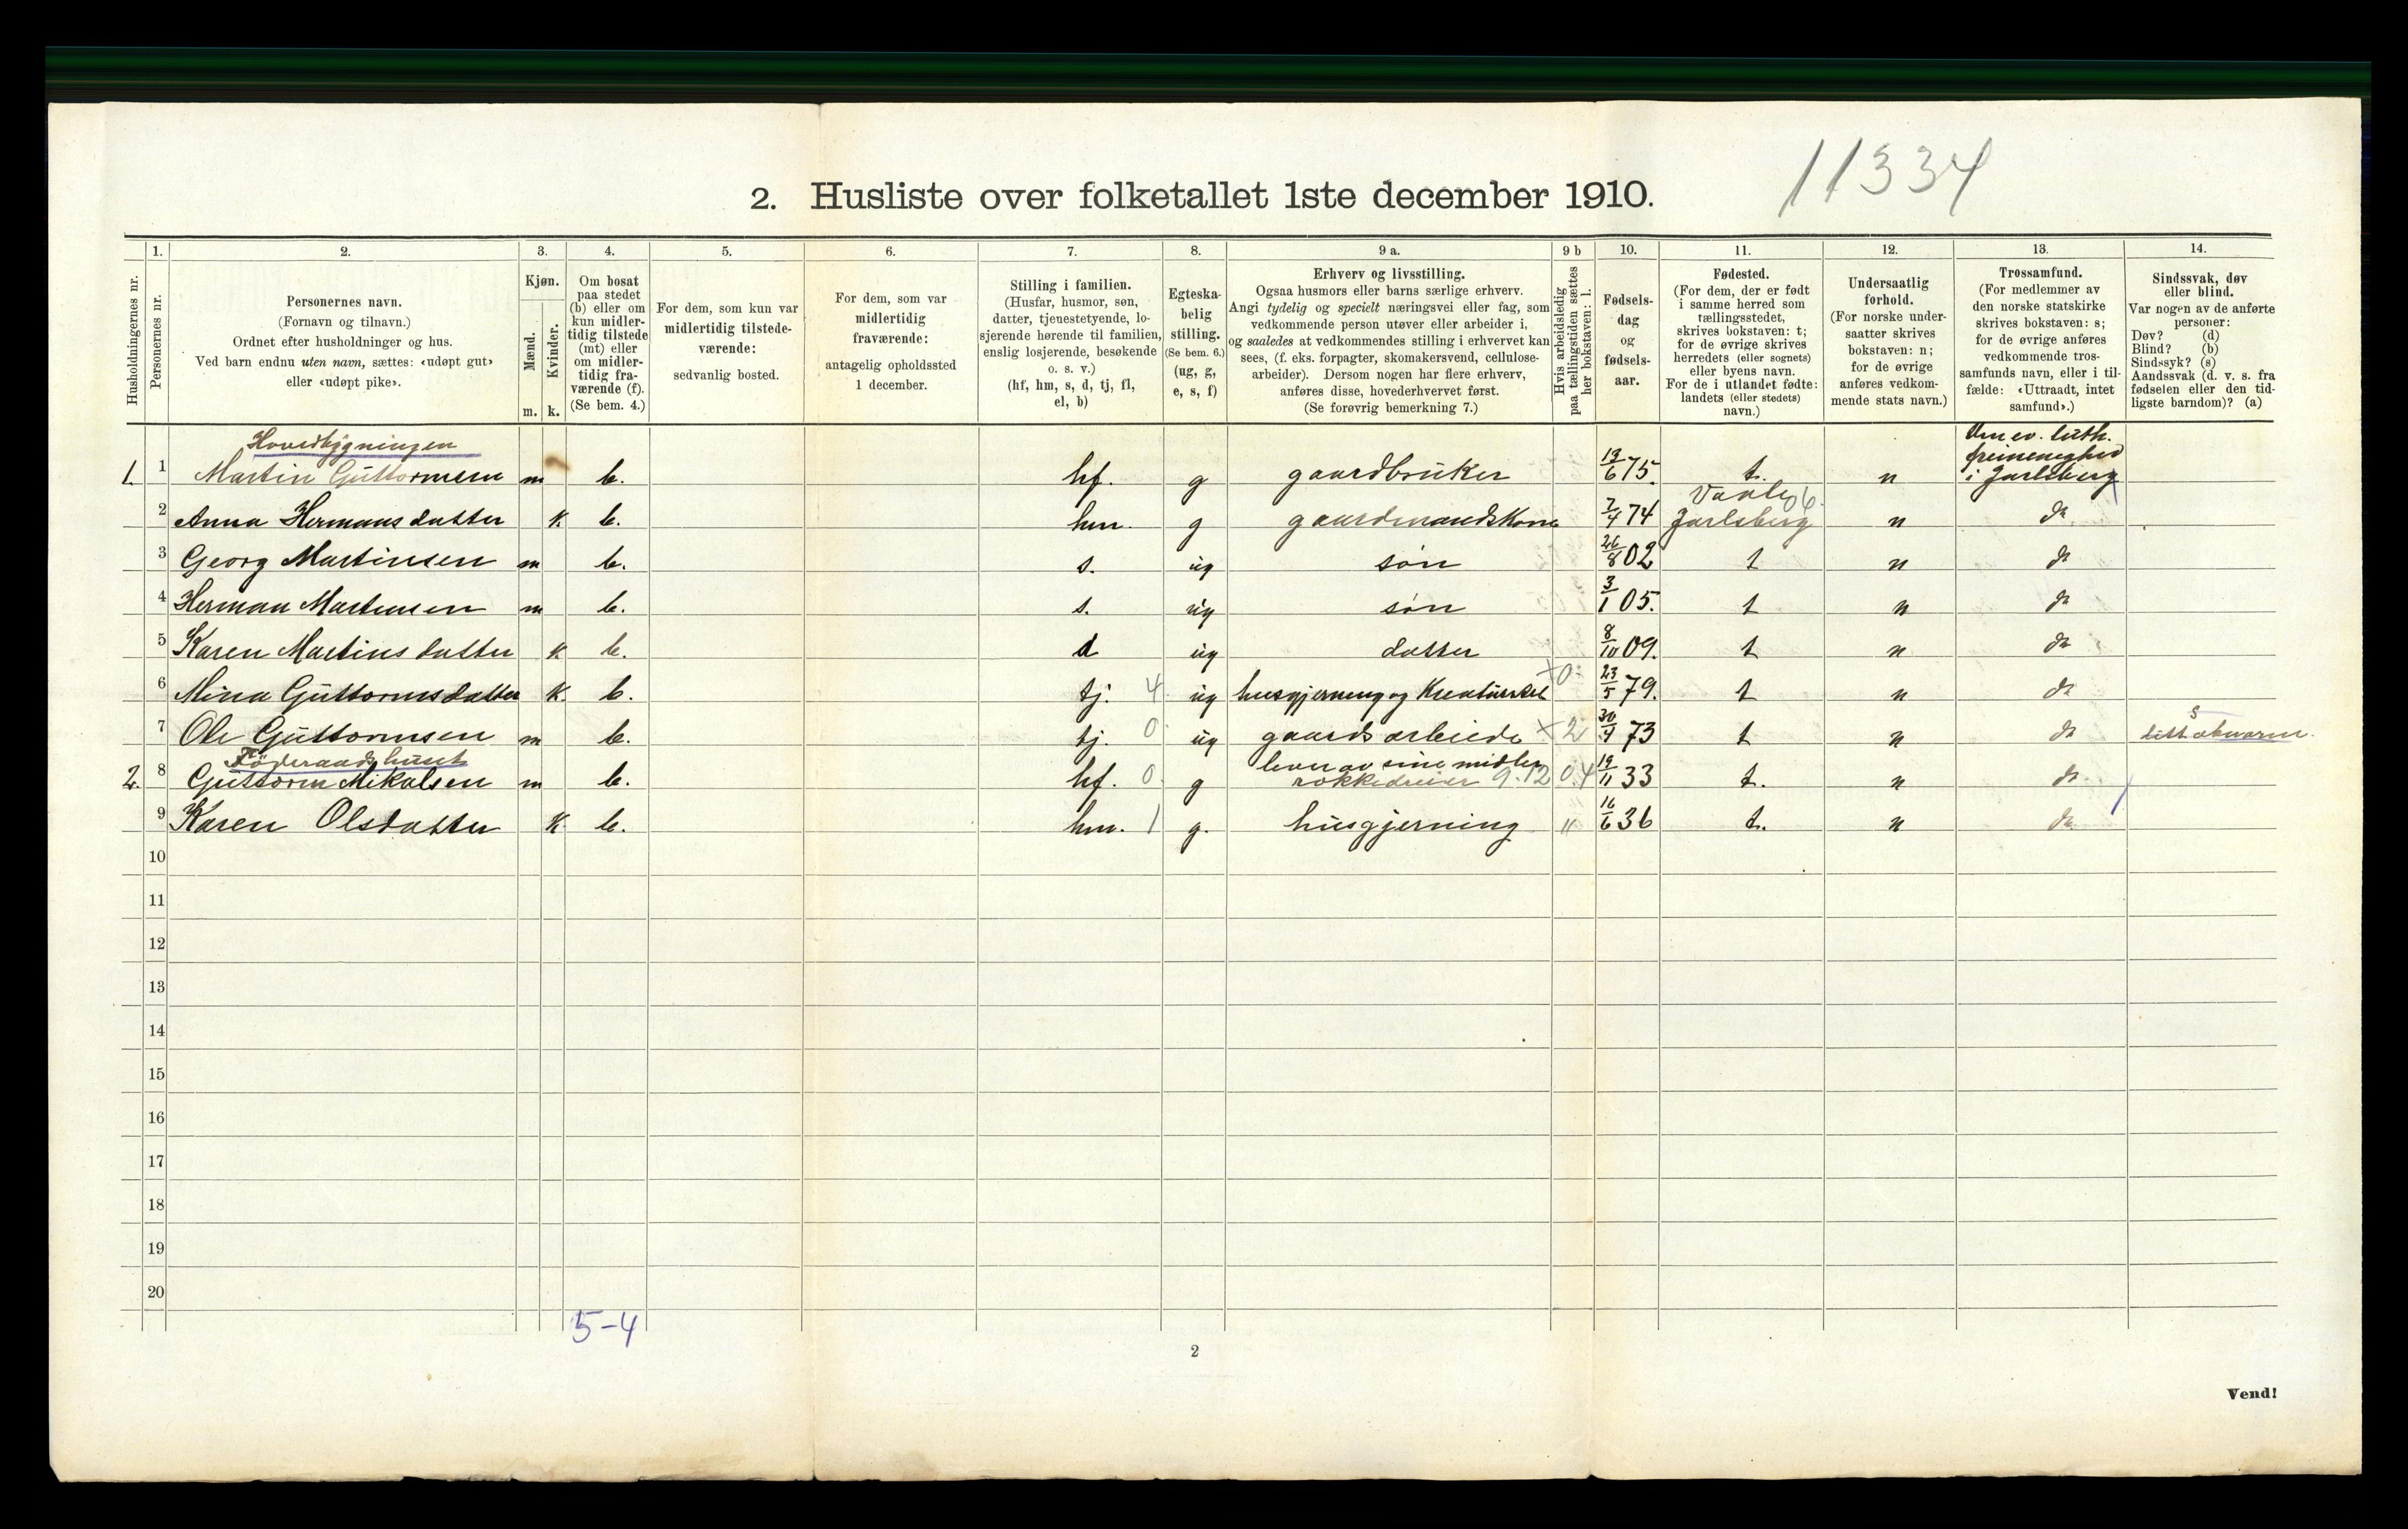 11334
2. Husliste over folketallet 1ste december 1910.
Husholdningernes nr.
1.
Personernes nr.
2.
Personernes navn.
(Fornavn og tilnavn.)
Ordnet efter husholdninger og hus.
Ved barn endnu uten navn, sættes: «udøpt gut»
eller «udøpt pike».
3.
Kjøn.
Mænd.
Kvinder.
m. k.
4.
Om bosat
paa stedet
(b) eller om
kun midler-
tidig tilstede
(mt) eller
om midler-
tidig fra-
værende (f).
(Se bem. 4.)
5.
For dem, som kun var
midlertidig tilstede-
værende:
sedvanlig bosted.
6.
For dem, som var
midlertidig
fraværende:
antagelig opholdssted
1 december.
7.
Stilling i familien.
(Husfar, husmor, søn,
datter, tjenestetyende, lo-
sjerende hørende til familien,
enslig losjerende, besøkende
o. s. v.)
(hf, hm, s, d, tj, fl,
el, b)
8.
Egteska-
belig
stilling.
(Se bem. 6.)
(ug, g,
e, s, f)
9 a.
Erhverv og livsstilling.
Ogsaa husmors eller barns særlige erhverv.
Angi tydelig og specielt næringsvei eller fag, som
vedkommende person utøver eller arbeider i,
og saaledes at vedkommendes stilling i erhvervet kan
sees, (f. eks. forpagter, skomakersvend, cellulose-
arbeider). Dersom nogen har flere erhverv,
anføres disse, hovederhvervet først.
(Se forøvrig bemerkning 7.)
9 b
Hvis arbeidsledig
paa tællingstiden sættes
her bokstaven: l.
10.
Fødsels-
dag
og
fødsels-
aar.
11.
Fødested.
(For dem, der er født
i samme herred som
tællingsstedet,
skrives bokstaven: t;
for de øvrige skrives
herredets (eller sognets)
eller byens navn.
For de i utlandet fødte:
landets (eller stedets)
navn.)
12.
Undersaatlig
forhold.
(For norske under-
saatter skrives
bokstaven: n;
for de øvrige
anføres vedkom-
mende stats navn.)
13.
Trossamfund.
(For medlemmer av
den norske statskirke
skrives bokstaven: s;
for de øvrige anføres
vedkommende tros-
samfunds navn, eller i til-
fælde: «Uttraadt, intet
samfund».)
14.
Sindssvak, døv
eller blind.
Var nogen av de anførte
personer:
Døv? (d)
Blind? (b)
Sindssyk? (s)
Aandssvak (d. v. s. fra
fødselen eller den tid-
ligste barndom)? (a)
Hovedbygningen
Den ev. luth.
frimenighed
1. 1 Martin Guttormsen m b. hf. g gaardbruker 19/6 75. t. n i Jarlsberg
Vaale
2 Anna Hermansdatter k b. hm. g gaardmandskone 2/4 74 Jarlsberg n do
3 Georg Martinsen m b. s. ug søn 26/8 02 t n do
4 Herman Martinsen m b. s. ug søn 3/1 05. t n do
5 Karen Martinsdatter k b. d ug datter 8/10 09. t n do
6 Mina Guttormsdatter k. b. tj. 4 ug husgjerning og Kreaturstel +0 23/5 79. t n do
7 Ole Guttormsen m b. tj. 0 ug gaardsarbeide +2 73 t n do s
Föderaadshuset
lever av sine midler
2. 8 Guttorm Mikalsen m b. hf. 0 g rokkedreier 9.12 0.4 19/11 33 t. n do
9 Karen Olsdatter k. b. hm. 1 g. husgjerning " 16/6 36 t. n do
10
11
12
13
14
15
16
17
18
19
20
5-4
2
Vend!